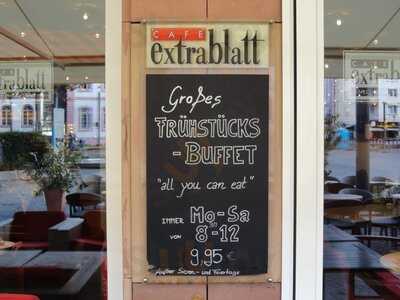 CAFÉ
extrablatt
Großes
FRÜHSTÜCKS
-BUFFET
"all you can eat"
IMMER Mo-Sa
VON 8-12
9,95 €
Außer Sonn- und Feiertage